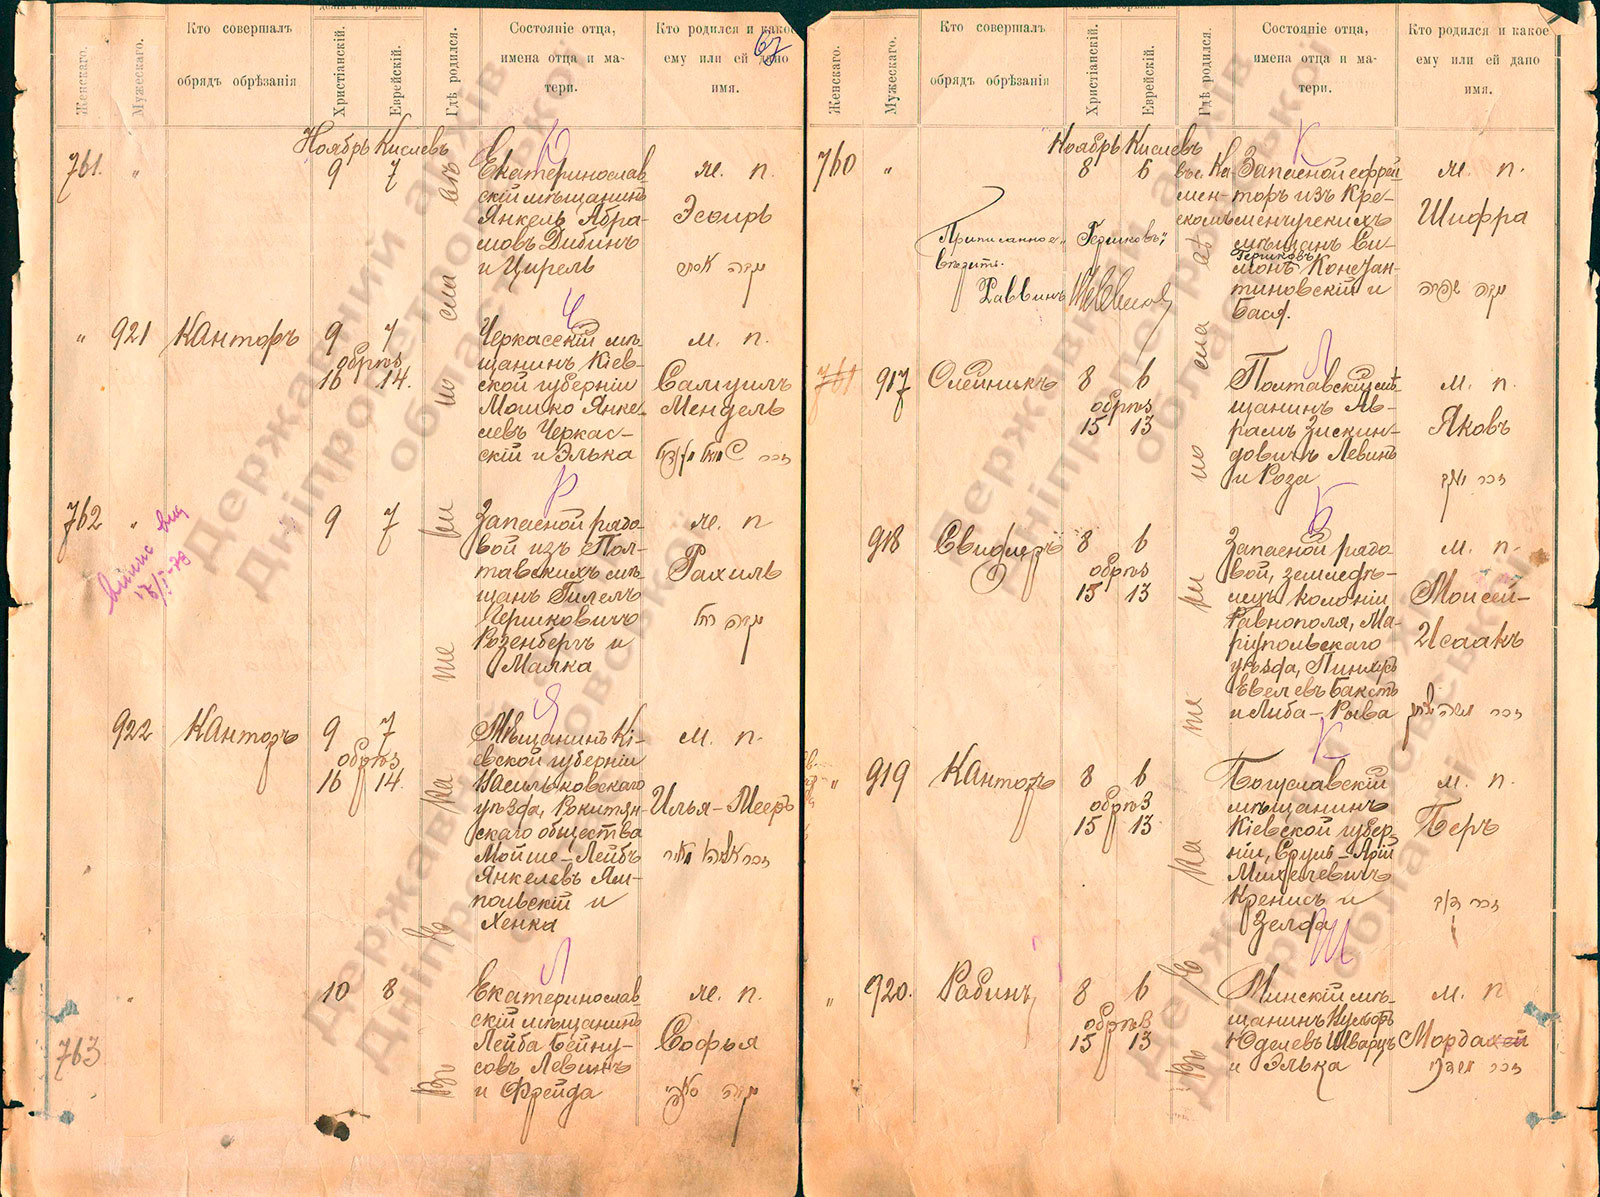 67
Женскаго.
Мужескаго.
Кто совершалъ
обрядъ обрѣзанія
Христіанскій.
Еврейскій.
Гдѣ родился.
Состояніе отца,
имена отца и ма-
тери.
Кто родился и какое
ему или ей дано
имя.
Ноябрь Кислевъ
761. „ 9 7
Екатеринослав
скій мѣщанинъ
Янкель Абра-
мовъ Дибинъ
и Цирель
Ж. п.
Эсѳирь
„ 921 Канторъ 9 7
обрѣз
16 14.
Черкасскій мѣ-
щанинъ Кіев-
ской губерніи
Мошко Янке-
левъ Черкас-
скій и Элька
м. п.
Самуилъ
Мендель
762 „ 9 7
Запасной рядо-
вой изъ Пол-
тавскихъ мѣ-
щанъ Гилель
Гершковичъ
Розенбергъ и
Малка
ж. п
Рахиль
נקבה רחל
922 Канторъ 9 7
обрѣз
16 14.
Мѣщанинъ Кі-
евской губерніи
Васильковскаго
уѣзда, Рокитян-
скаго общества
Мойше-Лейбъ
Янкелевъ Ям-
польскій и
Хенка
м. п.
Илья-Мееръ
763 10 8
Екатеринослав-
скій мѣщанинъ
Лейба Бейну-
совъ Левинъ
и Фрейда
ж. п.
Софья
Женскаго.
Мужескаго.
Кто совершалъ
обрядъ обрѣзанія
Христіанскій.
Еврейскій.
Гдѣ родился.
Состояніе отца,
имена отца и ма-
тери.
Кто родился и какое
ему или ей дано
имя.
Ноябрь Кислевъ
760 „ 8 6
въ с. Ка-
мен-
скомъ
Запасной ефрей-
торъ изъ Кре-
менчугскихъ
мѣщанъ Си-
Гершковъ
монъ Констан-
тиновскій и
Бася.
ж. п.
Шифра
נקבה שפרה
Приписанное „Гершковъ“,
вѣрить.
Раввинъ
761 917 Олейникъ 8 6
обрѣз
15 13
Полтавскій мѣ-
щанинъ Ав-
рамъ Зискин-
довичъ Левинъ
и Роза
м. п.
Яковъ
זכר יעקב
918 Свидлеръ 8 6
обрѣз
15 13
Запасной рядо-
вой, земледѣ-
лецъ колоніи
Равнополя, Ма-
ріупольскаго
уѣзда, Пинхусъ
Евелевъ Бакстъ
и Либа-Рыва
м. п.
Моисей-
Исаакъ
זכר משה יצחק
919 Канторъ 8 6
обрѣз
15 13
Богуславскій
мѣщанинъ
Кіевской губер-
ніи, Сруль-Арій
Михелевичъ
Кренисъ и
Зелда
м. п.
Беръ
„ 920. Рабинъ, 8 6
обрѣз
15 13
Минскій мѣ-
щанинъ
Юделевъ Шварцъ
и Элька
м. п
Мордахей
זכר מרדכי
Державний архів
Дніпропетровської
області